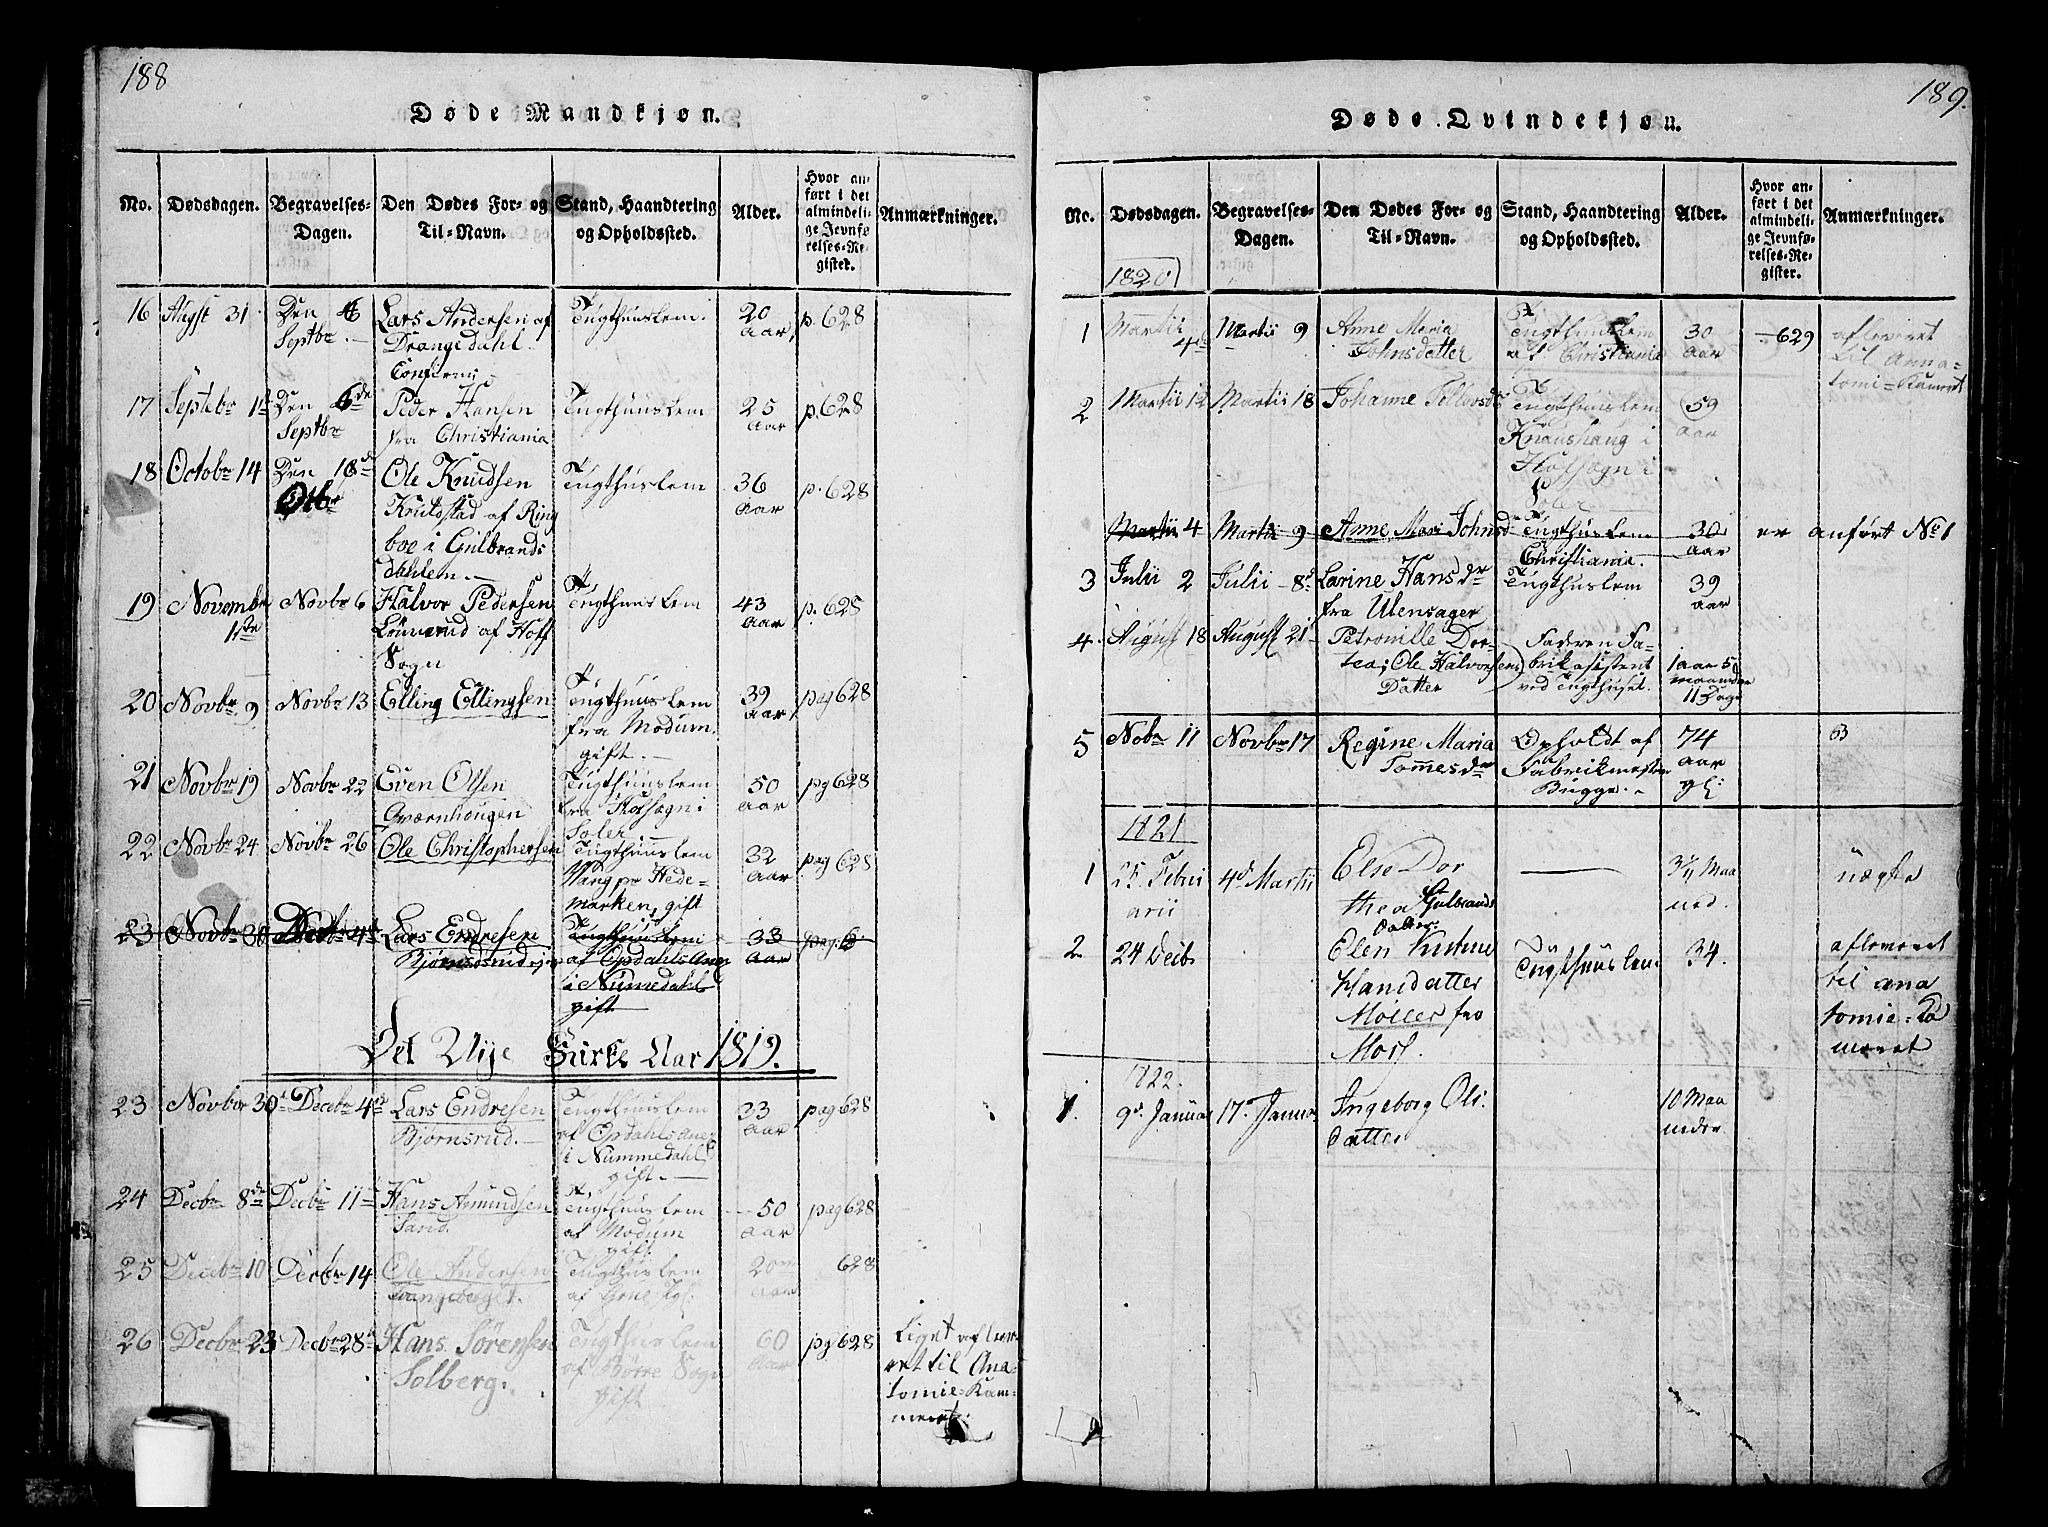 188
Døde Mandkjøn.
No.
Dødsdagen.
Begravelses-
Dagen.
Den Dødes For- og
Til-Navn.
Stand, Haandtering
og Opholdssted.
Alder.
Hvor an-
ført i det
almindeli-
ge Jevnfø-
relses-Re-
gister.
Anmærkninger.
16 Augst 31
Den 6
Septbr
Lars Andersen af
Drangedahl
Confirm:
Tugthuuslem
20
aar
p. 628
17 Septebr 1st
Den 6de
Septbr
Peder Hansen
fra Christiania
Tugthuuslem
25
aar
p. 628
18 Octobr 14
Den 18de
Octbr
Ole Knudsen
af Ring
boe i Gulbrands
dahlen.
Tugthuslem
36
aar
p. 628
19 Novembr
1ste
Novbr 6
Halvor Pedersen
af Hoff
Sogn
Tugthuuslem
43
aar
p. 628
20 Novbr 9
Novbr 13
Elling Ellingsen
Tugthuuslem
fra Modum
gift.
39
aar
pag 628
21 Novbr 19
Novbr 22
Even Olsen
Qværnhougen
Tugthuuslem
fra Hofsogn i
Soler
50
aar
pag 628
22 Novbr 24
Novbr 26
Ole Christophersen
Tugthuuslem
Vang pr Hede-
marken, gift
32
aar
pag 628
23 Novbr 30
Decbr 4de
Lars Endresen
Bjørnsrud
Tugthuuslem
af Opdahls Anex
i Numedahl
gift
33
aar
pag: 6
Det Nye Kirke Aar 1819.
23 Novbr 30
Decbr 4de
Lars Endresen
Bjørnsrud.
Tugthuuslem
af Opdahls Anex
i Nummedahl
gift.
33
aar
pag 628
24 Decbr 8de
Decbr 11
Hans Amundsen
Sand.
Tugthuuslem
af Modum
gift
50
aar
pag 628
25 Decbr 10
Decbr 14
Ole Andersen
Tugthuslem
af
20
aar
628
26 Decbr 23
Decbr 28
Hans Sørensen
Solberg.
Tugthuslem
af Børre Sogn
gift
60
aar
pg 628
Liget aflev-
ret til Ana-
tomie-Kam-
meret.
189.
Døde Qvindekjøn.
No.
Dødsdagen.
Begravelses-
Dagen.
Den Dødes For- og
Til-Navn.
Stand, Haandtering
og Opholdssted.
Alder.
Hvor an-
ført i det
almindelig-
ge Jevnfø-
relses-Re-
gister.
Anmærkninger.
1820
1 Martii
4de
Martii 9
Anne Maria
Johnsdatter
Tugthuuslem
af Christiania
30
aar
629
afleveret
til Anna-
tomi-Kamret
2 Martii 12
Martii 18
Johanne
Tugthuuslem
Knaushaug i
Hofsogn i
Soler
59
aar
Martii 4
Martii 9
Anne Mari Johnsd
Tugthuslem
Christiania
30
aar
er anført No 1
3 Julii 2
Julii 8
Larine Hansdr
fra Ulensager
Tugthuslem
39
aar
4 August 18
August 21
Petronille Dor-
tea, Ole Halvorsens
Datter
Faderen Fa-
brikasistent
ved Tugthuset.
1 aar 5
maaneder
11 Dage
5 Nobr 11
Novbr 17
Regine Maria
Tommesdr
Opholdt af
Fabrikmester
Bugge.
74
aar
gl:
1821
1 25 Febru
arii
4d Martii
Else Dor
thea Gulbrands
Datter
3 Maa
ned.
uægte
2 24 Decb
Elen
Hansdatter
fra
Moss.
Tugthuuslem
34.
afleveret
til ana
tomie-Ka
meret
1822.
1. 9d. Januar
17. Janua
Ingeborg Ols
datter
10 Maa
neder